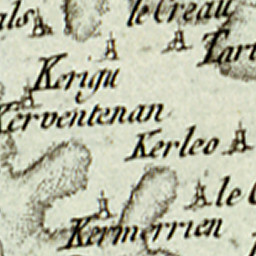 als
le Creau
Tart
Kerigu
Kerventenan
Kerleo
le C
Kermerrien